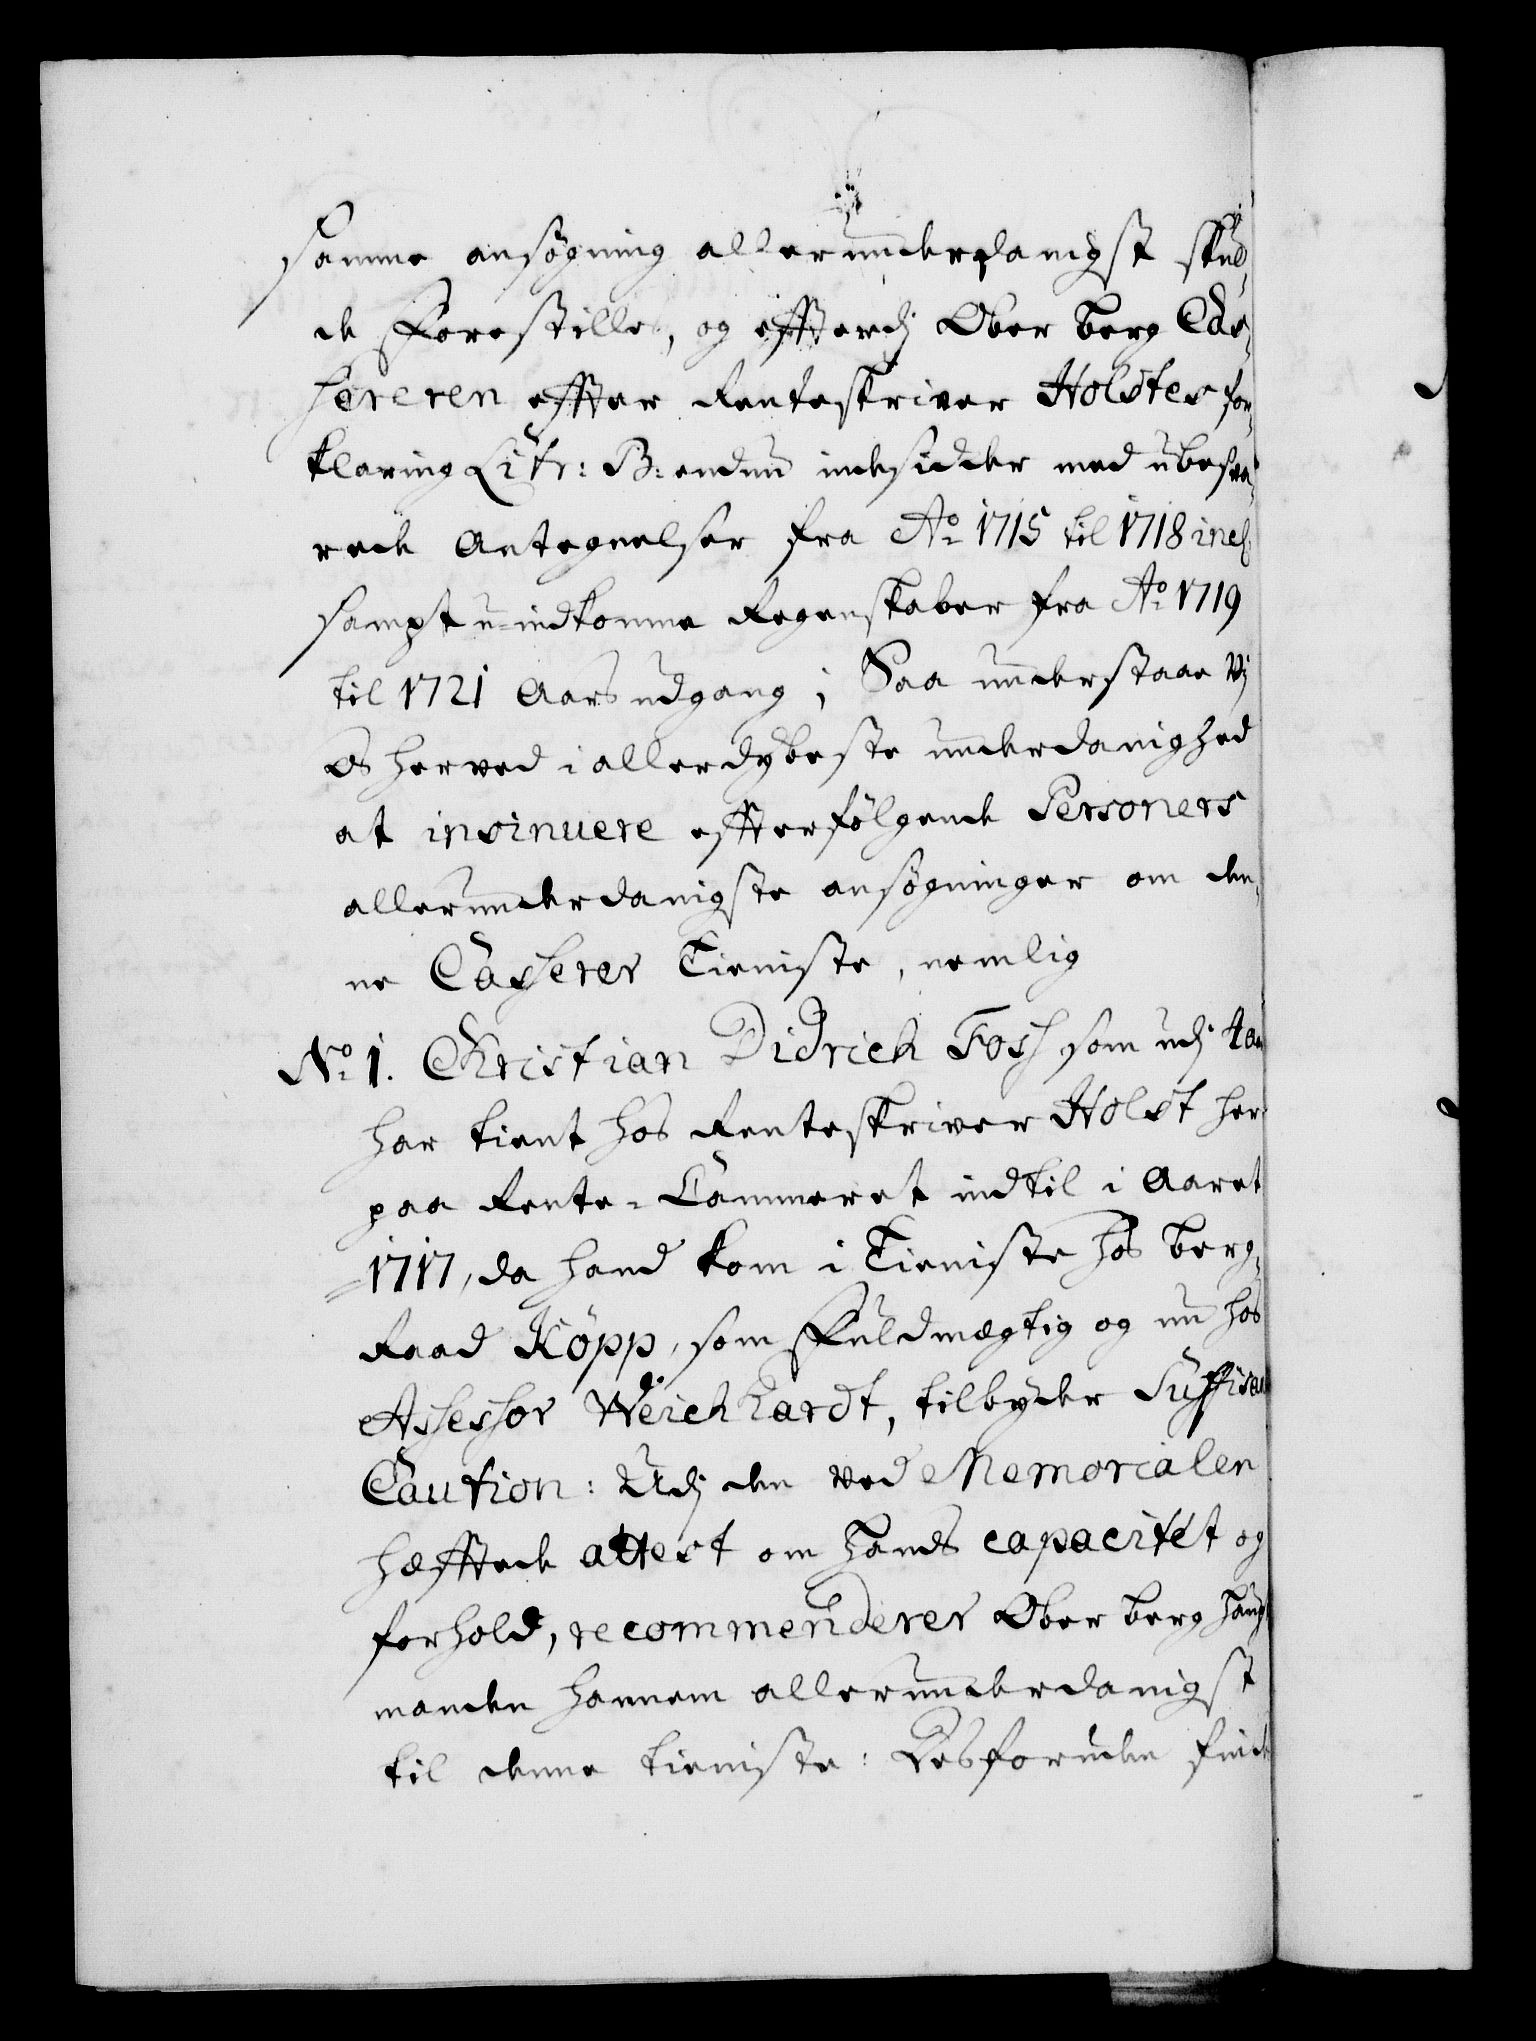 samme ansøgning allerunderdanigst skul-
de Forestilles, og effterdj Ober Berg Cas-
hereren effter Renteskriver Holstes for-
klaring Litr: B: endnu indesidder med ubesva-
rede Antegnelser fra Ao 1715 til 1718 incl
sampt u-indkomne Regenskaber fra Ao 1719
til 1721 Aars udgang; Saa understaae Vj
Os herved i allerdybeste underdanighed
at insinuere effterfølgende Personers
allerunderdanigste ansøgninger om den-
ne Casserer Tieniste, nemlig
No 1. Christian Didrich Foss som udj
har tient hos Renteskriver Holst her
paa Rente-Cammeret indtil i Aaret
1717, da hand kom i Tieniste hos Berg-
Raad Köpp, som Fuldmægtig og nu hos
Assessor Weichhardt, tilbyder Suffisan
Caution: Udj den ved Memorialen
hæfftede attest om hands capacitet og
forhold, recommenderer Ober Berg Haupt
manden hannem allerunderdanigst
til denne tieniste: Desforuden finde